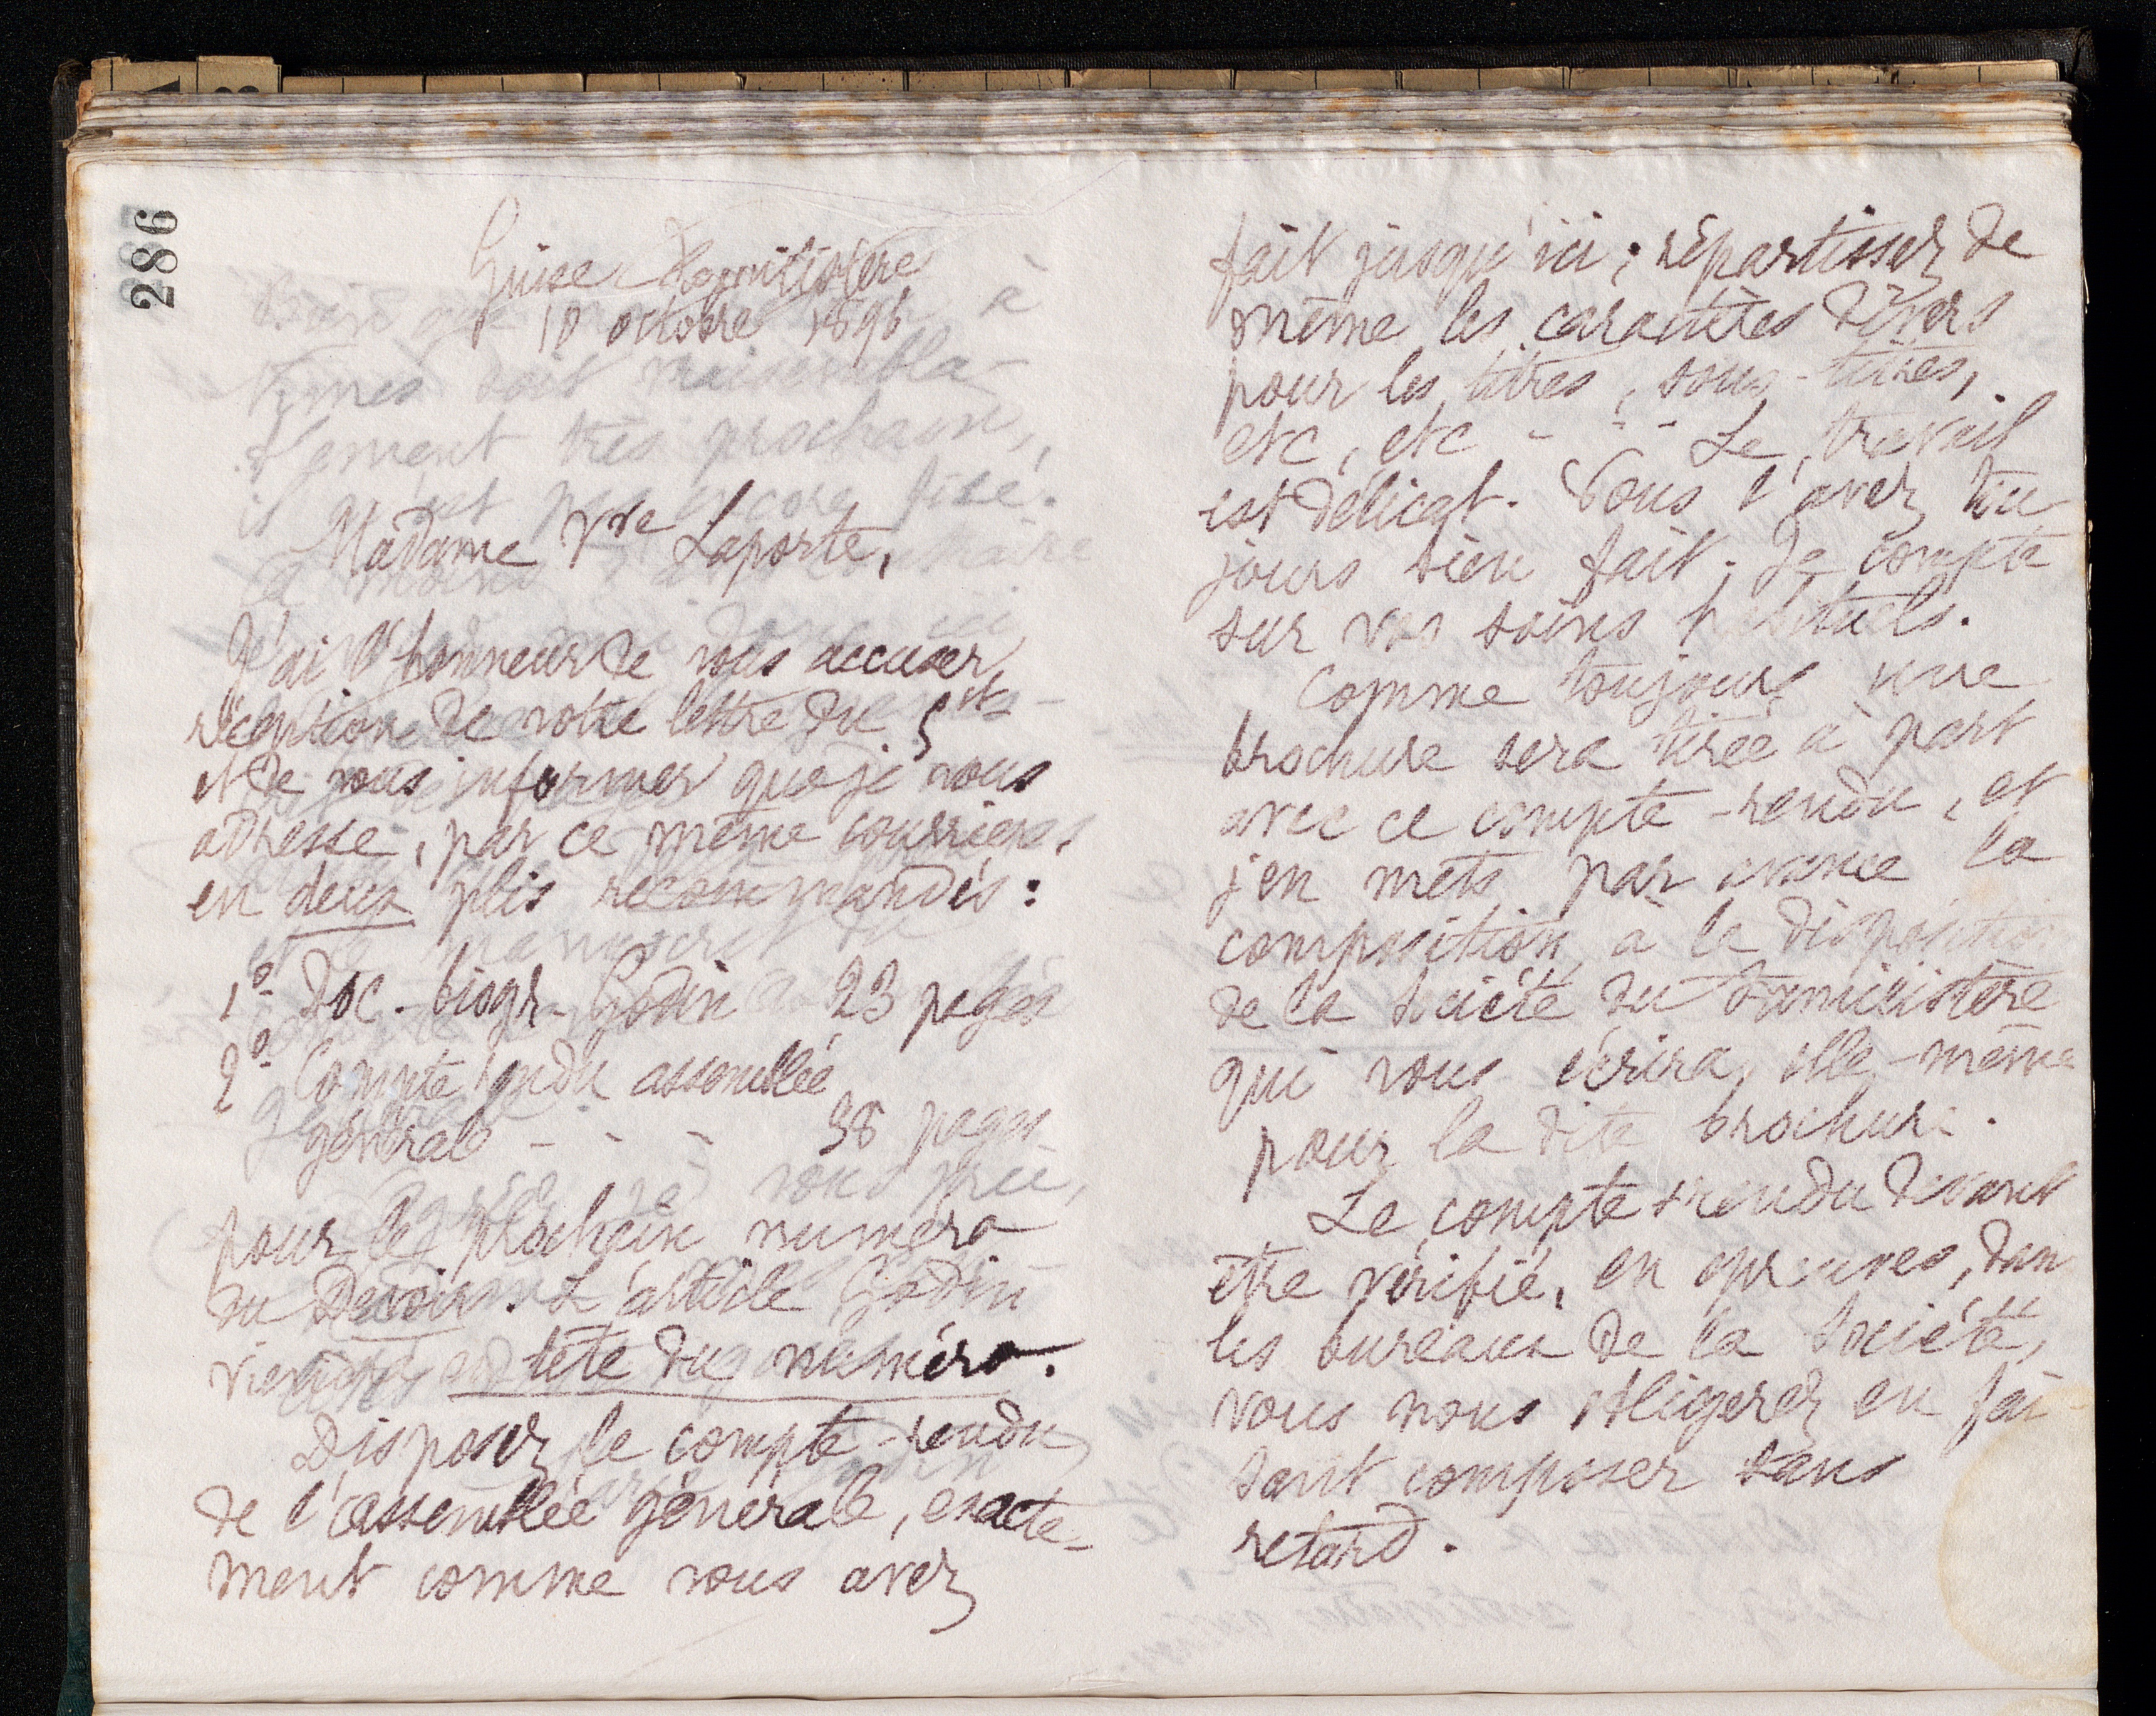 286
Guise Familistère
10 octobre 1896
Madame Vve Laporte,
J'ai l'honneur de vous accuser
réception de votre lettre du 5 et
et de vous informer que je vous
adresse, par ce même courrier,
en deux plis recommandés :
1º Doc. biogr. Godin 23 pages
2º Compte rendu assemblée
générale - - - 38 pages
pour le prochain numéro
du Devoir. L'article Godin
viendra en tête du numéro.
Disposez le compte-rendu
de l'assemblée générale, exacte-
ment comme vous avez
fait jusqu'ici ; répartissez de
même les caractères divers
pour les titres, sous-titres,
etc, etc - - - Le travail
est délicat. Vous l'avez tou
jours bien fait. Je compte
sur vos soins habituels.
Comme toujours une
brochure sera tirée à part
avec ce compte-rendu, et
j'en mets par avance la
composition à la disposition
de la Société du Familistère
qui vous écrira elle-même
pour la dite brochure.
Le compte rendu devant
être vérifié, en épreuves, dans
les bureaux de la Société,
vous nous obligerez en fai
sant composer sans
retard.